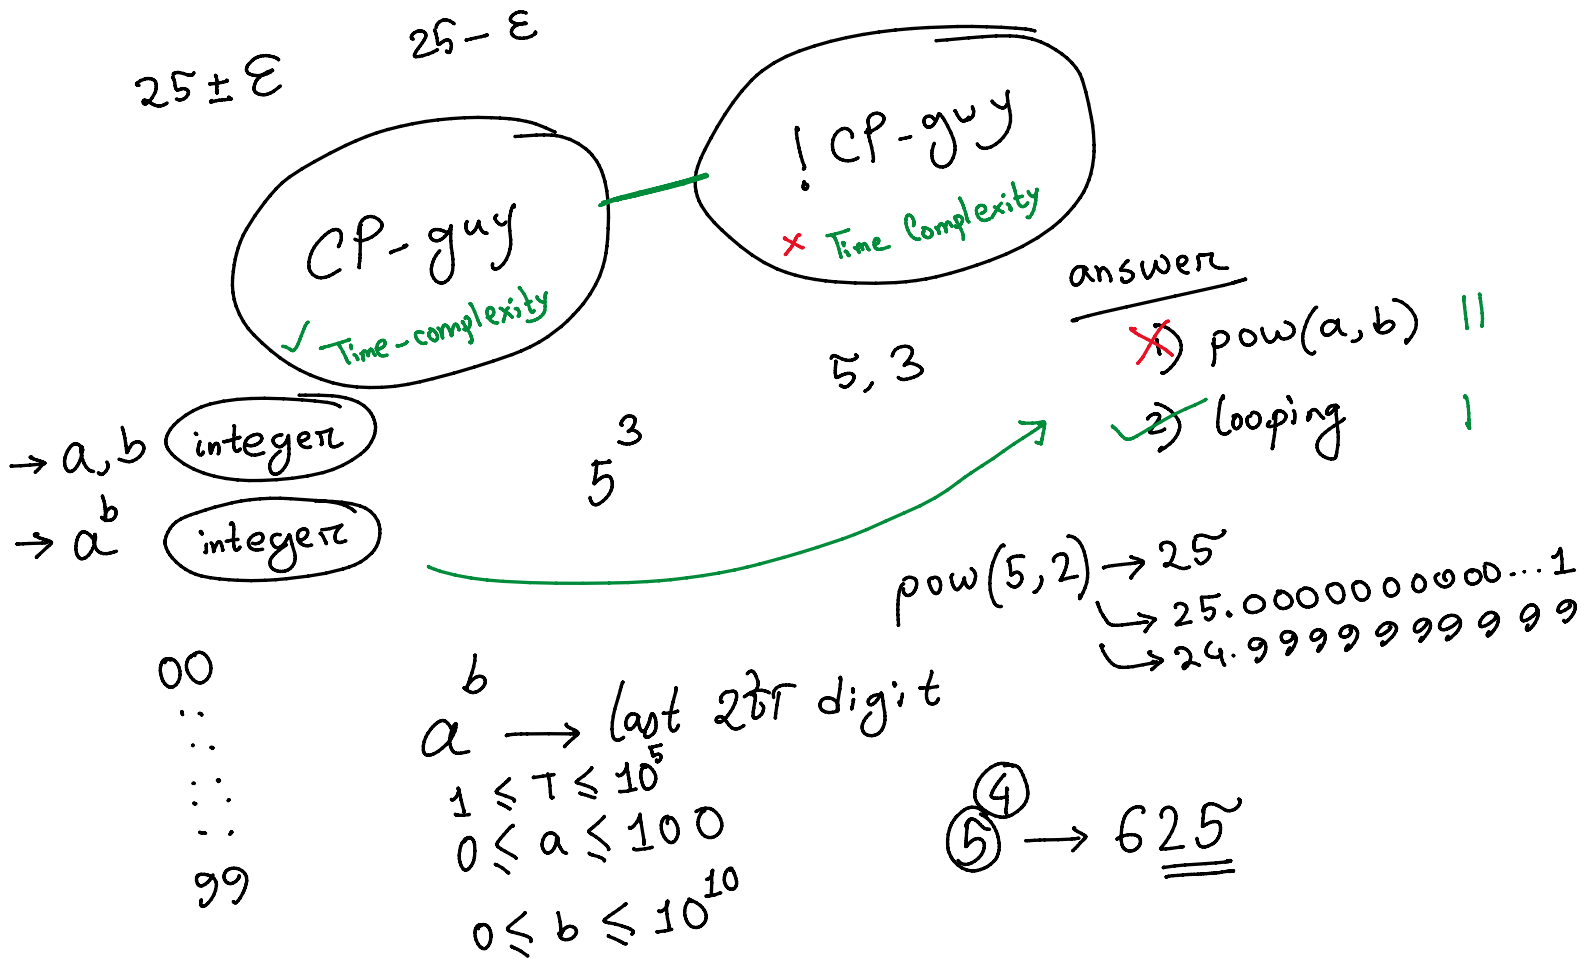 25 ± ε
25 - ε
CP-guy
✓ Time-complexity
! CP-guy
× Time Complexity
answer
1) pow(a,b) ||
2) looping |
5, 3
→ a, b integer
5³
→ aᵇ integer
pow(5,2) → 25
→ 25.0000000000...1
→ 24.9999999999
00
99
aᵇ → last 2টা digit
1 ≤ T ≤ 10⁵
0 ≤ a ≤ 100
0 ≤ b ≤ 10¹⁰
5⁴ → 625